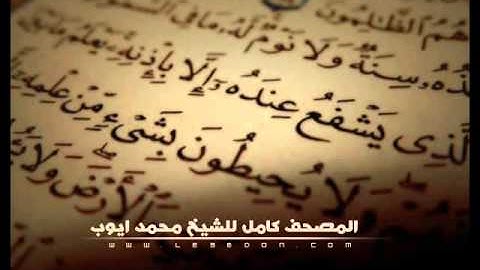 هُمُ ٱلظَّٰلِمُونَ
سِنَةٌ وَلَا نَوْمٌ لَّهُۥ مَا فِى
لَّذِى يَشْفَعُ عِندَهُۥٓ إِلَّا بِإِذْنِهِۦ يَعْلَمُ
وَلَا يُحِيطُونَ بِشَىْءٍ مِّنْ عِلْمِهِۦٓ
ٱلْأَرْضَ وَلَا
المصحف كامل للشيخ محمد ايوب
www.leseoon.com